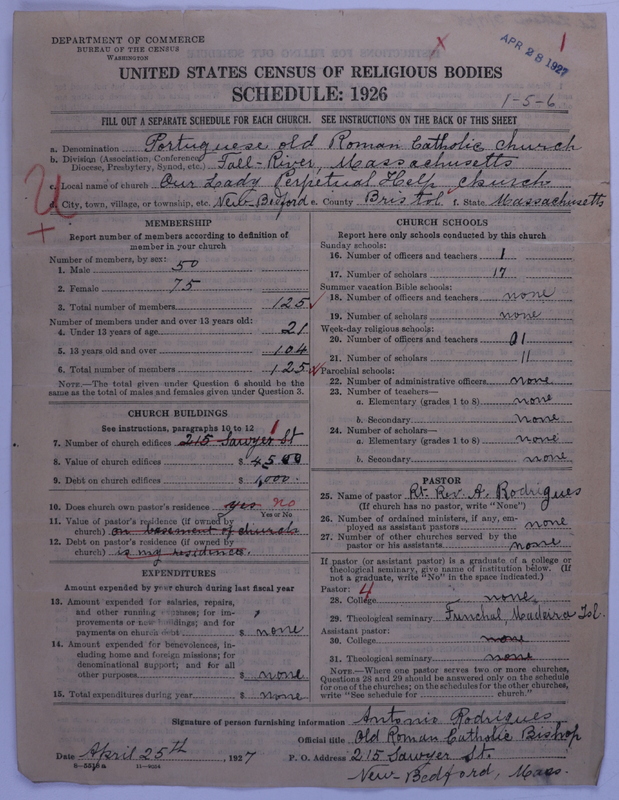 DEPARTMENT OF COMMERCE
BUREAU OF THE CENSUS
WASHINGTON
APR 28 1927
1
x
UNITED STATES CENSUS OF RELIGIOUS BODIES
SCHEDULE: 1926
1-5-6
FILL OUT A SEPARATE SCHEDULE FOR EACH CHURCH. SEE INSTRUCTIONS ON THE BACK OF THIS SHEET
a. Denomination Portuguese old Roman Catholic church
b. Division (Association, Conference, Diocese, Presbytery, Synod, etc.) Fall-River, Massachusetts
c. Local name of church Our Lady Perpetual Help church
d. City, town, village, or township, etc. New-Bedford e. County Bristol f. State Massachusetts
MEMBERSHIP
Report number of members according to definition of
member in your church
Number of members, by sex:
1. Male 50
2. Female 75
3. Total number of members 125
Number of members under and over 13 years old:
4. Under 13 years of age 21
5. 13 years old and over 104
6. Total number of members 125
NOTE.—The total given under Question 6 should be the
same as the total of males and females given under Question 3.
CHURCH BUILDINGS
See instructions, paragraphs 10 to 12
7. Number of church edifices 215 Sawyer St 1
8. Value of church edifices $ 4500
9. Debt on church edifices $ 1,000.
10. Does church own pastor's residence yes no
Yes or No
11. Value of pastor's residence (if owned by
church) on basement of church
12. Debt on pastor's residence (if owned by
church) is my residence.
EXPENDITURES
Amount expended by your church during last fiscal year
13. Amount expended for salaries, repairs,
and other running expenses; for im-
provements or new buildings; and for
payments on church debt $ none
14. Amount expended for benevolences, in-
cluding home and foreign missions; for
denominational support; and for all
other purposes $ none
15. Total expenditures during year $ none
CHURCH SCHOOLS
Report here only schools conducted by this church
Sunday schools:
16. Number of officers and teachers 1
17. Number of scholars 17
Summer vacation Bible schools:
18. Number of officers and teachers none
19. Number of scholars none
Week-day religious schools:
20. Number of officers and teachers 01
21. Number of scholars 11
Parochial schools:
22. Number of administrative officers none
23. Number of teachers—
a. Elementary (grades 1 to 8) none
b. Secondary none
24. Number of scholars—
a. Elementary (grades 1 to 8) none
b. Secondary none
PASTOR
25. Name of pastor Rt. Rev. A. Rodrigues
(If church has no pastor, write "None")
26. Number of ordained ministers, if any, em-
ployed as assistant pastors none
27. Number of other churches served by the
pastor or his assistants none
If pastor (or assistant pastor) is a graduate of a college or
theological seminary, give name of institution below. (If
not a graduate, write "No" in the space indicated.)
Pastor: 4
28. College none
29. Theological seminary Funchal Madeira Isl.
Assistant pastor:
30. College none
31. Theological seminary none
NOTE.—Where one pastor serves two or more churches,
Questions 28 and 29 should be answered only on the schedule
for one of the churches; on the schedules for the other churches,
write "See schedule for church."
Signature of person furnishing information Antonio Rodrigues
Official title Old Roman Catholic Bishop
Date April 25th, 1927 P. O. Address 215 Sawyer St.
New-Bedford, Mass.